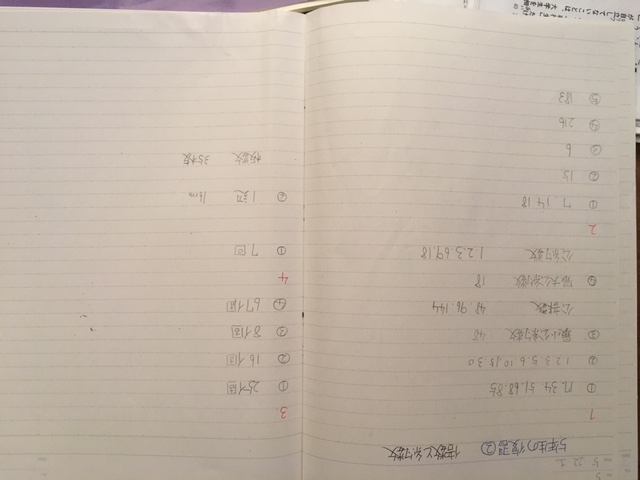 5年生の復習② 倍数と約数
1
① 17. 34. 51. 68. 85
② 1. 2. 3. 5. 6. 10. 15. 30
③ 最小公約数 48
公倍数 48. 96. 144
④ 最大公約数 18
公約数 1. 2. 3. 6. 9. 18
2
① 7 14 18
② 15
③ 6
④ 216
⑤ 183
3
① 25個
② 16個
③ 8個
④ 67個
4
① 7回
② 1辺 16cm
枚数 35枚